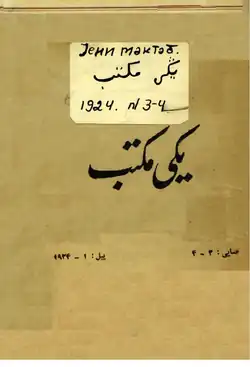 Јени мәктәб.
یڭی مکتب
1924. N 3-4
یڭی مکتب
صایی: ۳ - ۴
ییل: ۱ - ۱۹۲۴